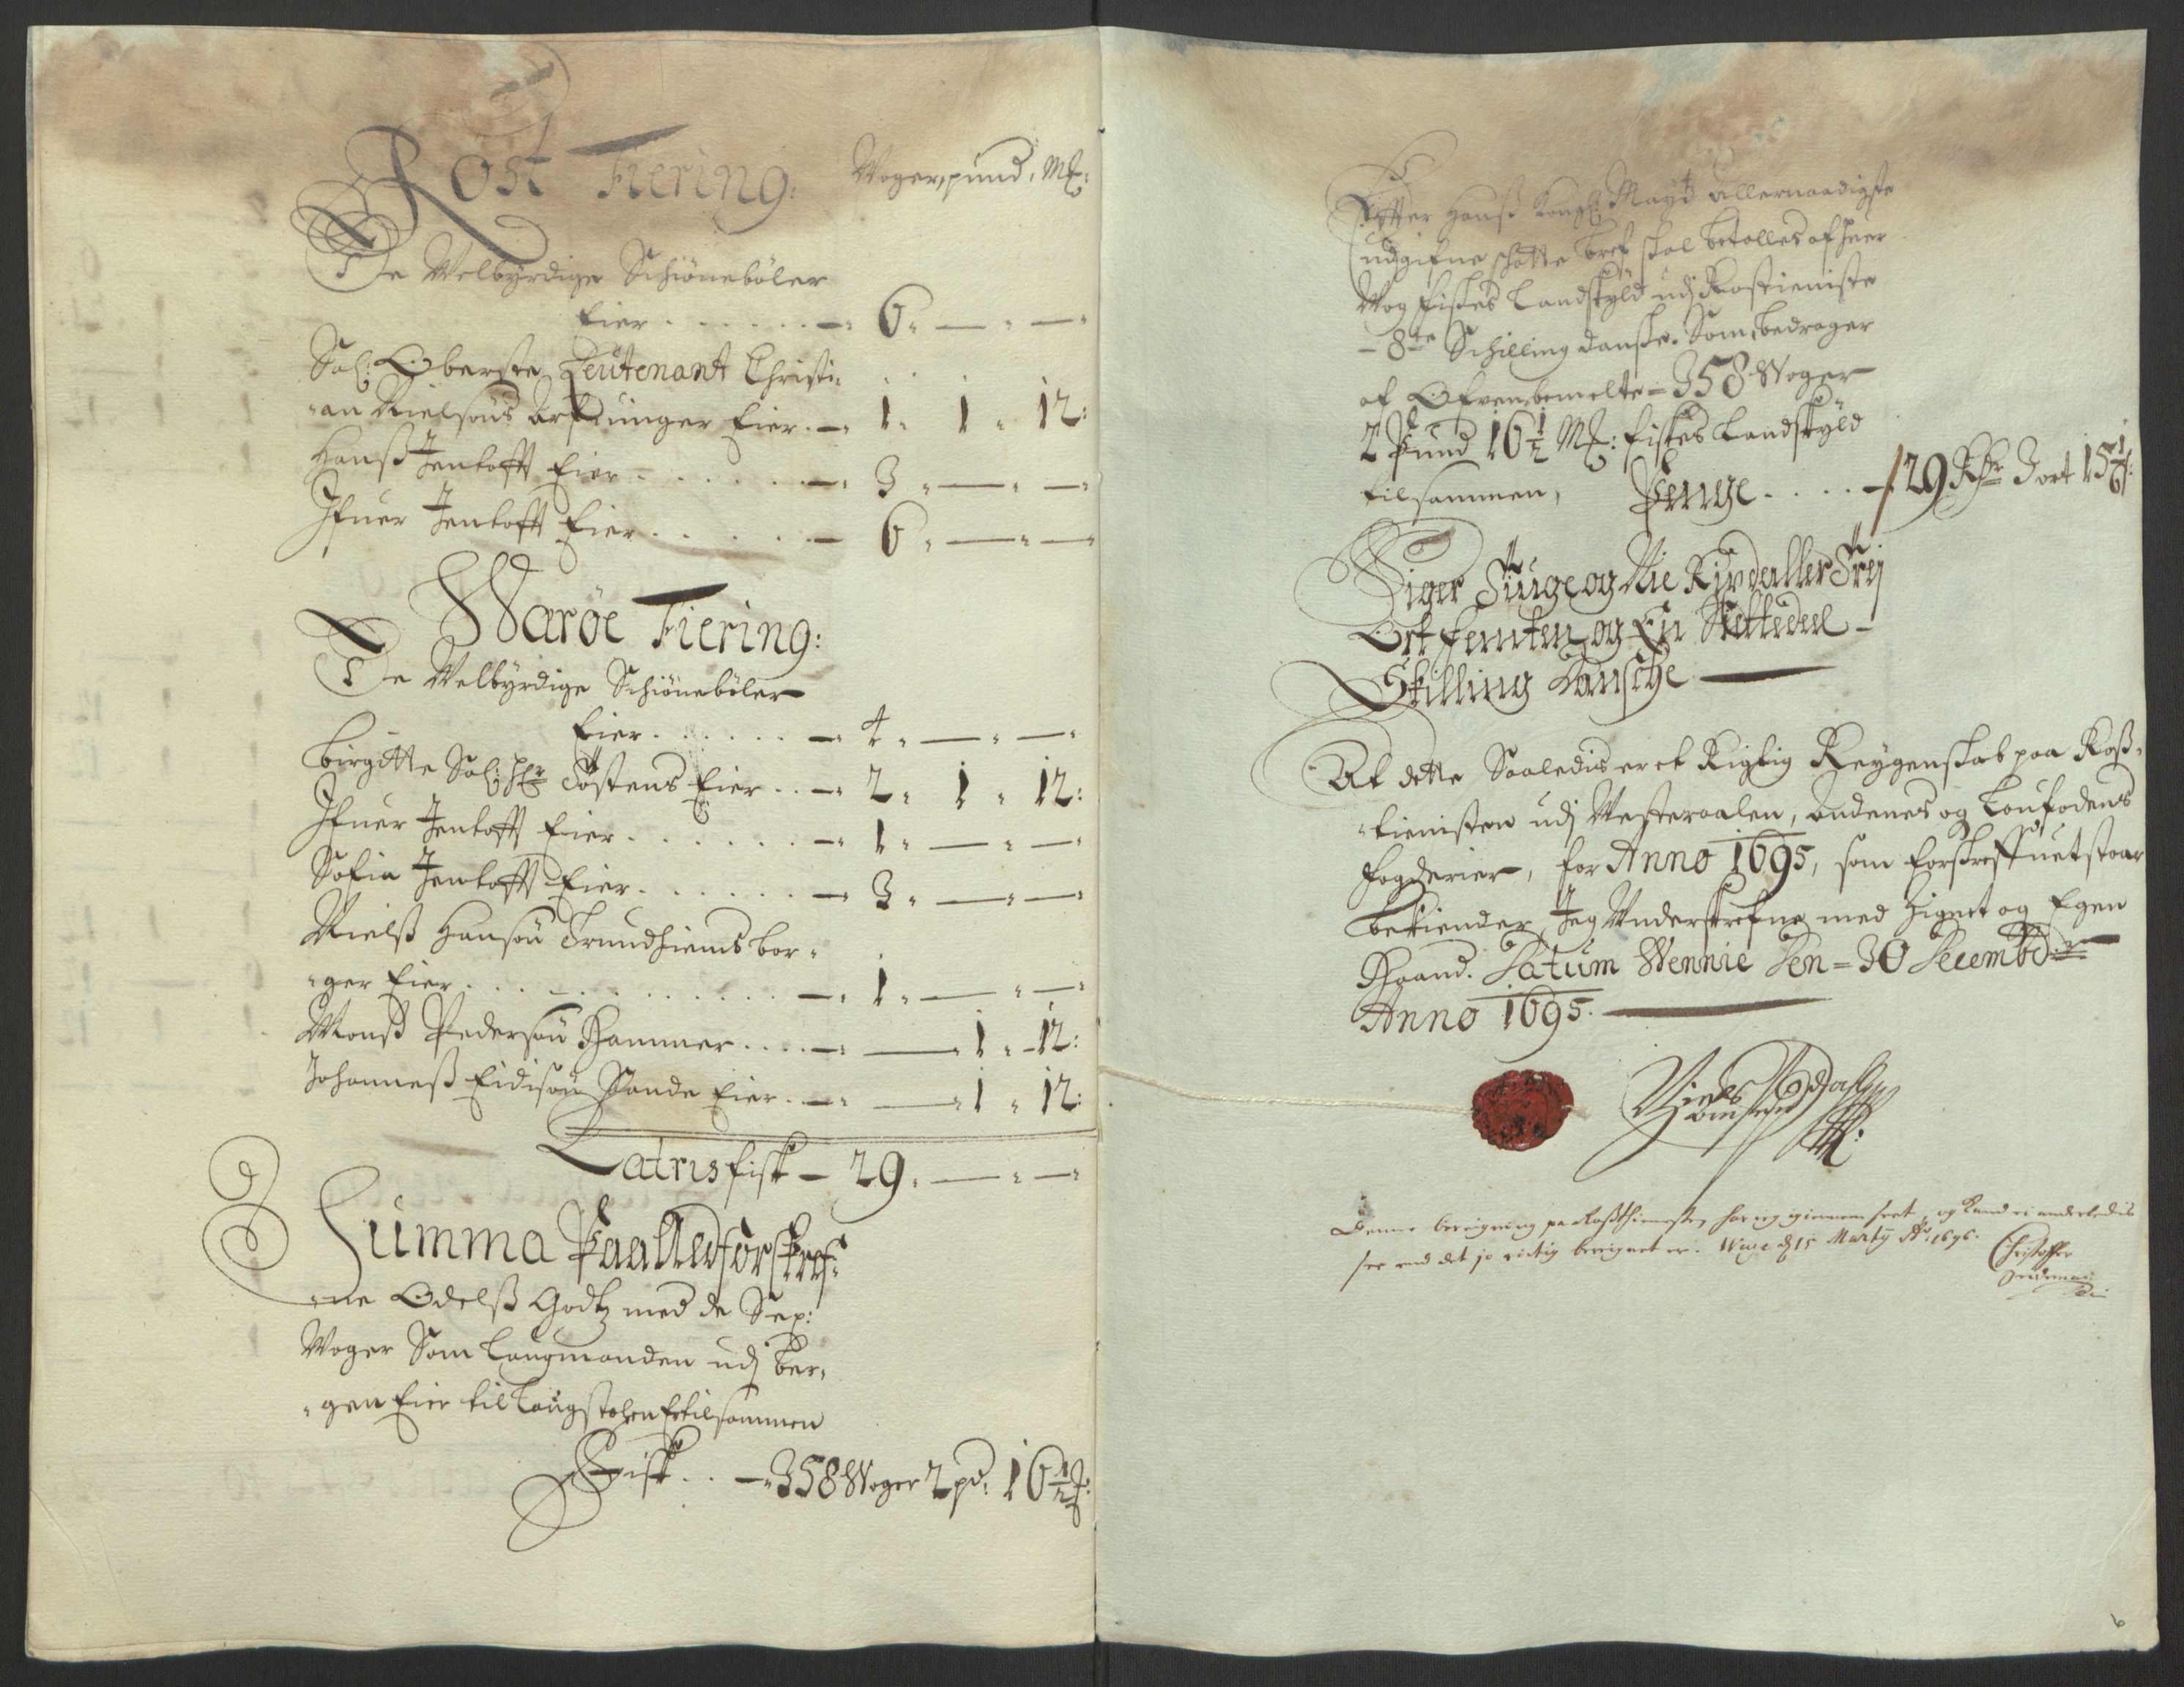 Röst Fiering: Woger, pund, Mk:
De Welbyrdige Schiönebøler
Eier . . . . . . — 6. — . — .
Sal: Oberste Leutenant Christi-
-an Nielsøns Arfvinger Eier. — 1. 1. 12:
Hanss Jentofft Eier . . . . . . — 3. — . — .
Ifuer Jentofft Eier . . . . . — 6. — . — .
Warøe Fiering:
De Welbyrdige Schiönebøler
Eier . . . . . . — 4. — . — .
Birgitte Sal: Hr Töstens Eier . . — 2. 1. 12:
Ifuer Jentofft Eier . . . . . . — 1. — . — .
Sofia Jentofft Eier . . . . . . — 3. — . — .
Nielss Hansøn Trundhiems bor-
-ger Eier . . . . . . . . . . — 1. — . — .
Monss Pedersøn Hammer . . . . — — 1. 12:
Johanness Eidisøn Sande Eier . — — 1. 12:
Latris fisk — 29. — . — .
Summa Paa Alt forskref-
-ne Odelss Godtz med de Sex:
Woger Som Laugmanden udj Ber-
-gen Eier til Laugstolen Er tilsammen
Fisk . . — 358 Woger 2 pd: 16 1/2 Mk:
Efter Hanss Kongl: Mayts allernaadigste
udgifne schatte bref skal betalles af huer
Wog fiskes Landskyld udj Rostieniste
- 8te Schilling danske. Som bedrager
af Ofvenbemelte = 358 Woger
2 Pund 16 1/2 Mk: fiskes Landskyld
tilsammen, Penge . . . . — 129 Rdr 3 ort 15 1/6 s:
Siger Tiuge og Nie Rixdaller Trej
Ort femten og En Siettedeel -
Skilling Dansche —
At dette Saaledis er et Rigtig Reygenskab paa Ross-
-tienisten udj Westeraalen, Andenes og Loufodens
fogderier, for Anno 1695, som forskreffuet staar
bekiender Jeg Underskrefne med Zignet og Egen
Haand. Datum Wennie Den = 30 Decembr
Anno 1695.
Denne bereigning paa Rosthienesten har ieg igiennem seet, og kand ei anderledis
see end det jo rictig bereignet er. Wuge d 15 Martij Ao 1696. Christoffer